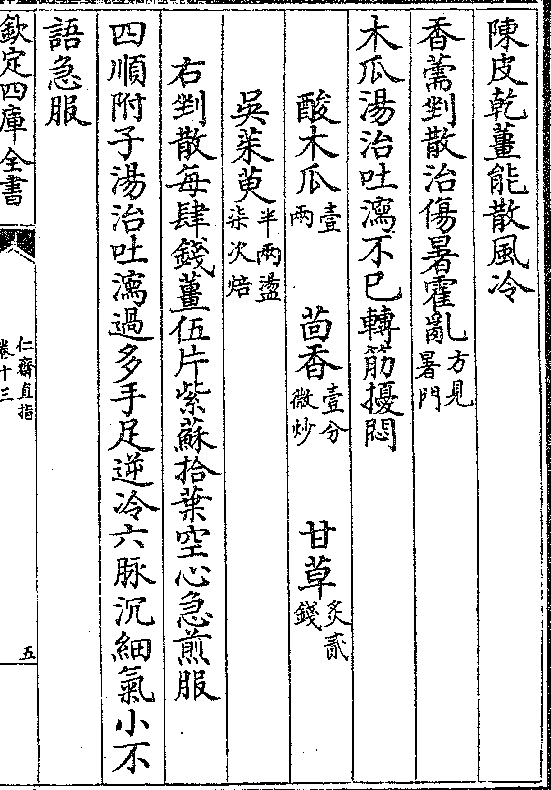 陳皮乾薑能散風冷
香薷剉散治傷暑霍亂方見暑門
木瓜湯治吐瀉不已轉筋擾悶
酸木瓜壹兩 茴香壹分微炒 甘草炙貳錢
吳茱萸半兩盪柒次焙
右剉散每肆錢薑伍片紫蘇拾葉空心急煎服
四順附子湯治吐瀉過多手足逆冷六脉沉細氣小不
語急服
欽定四庫全書
仁齋直指
卷十三
五